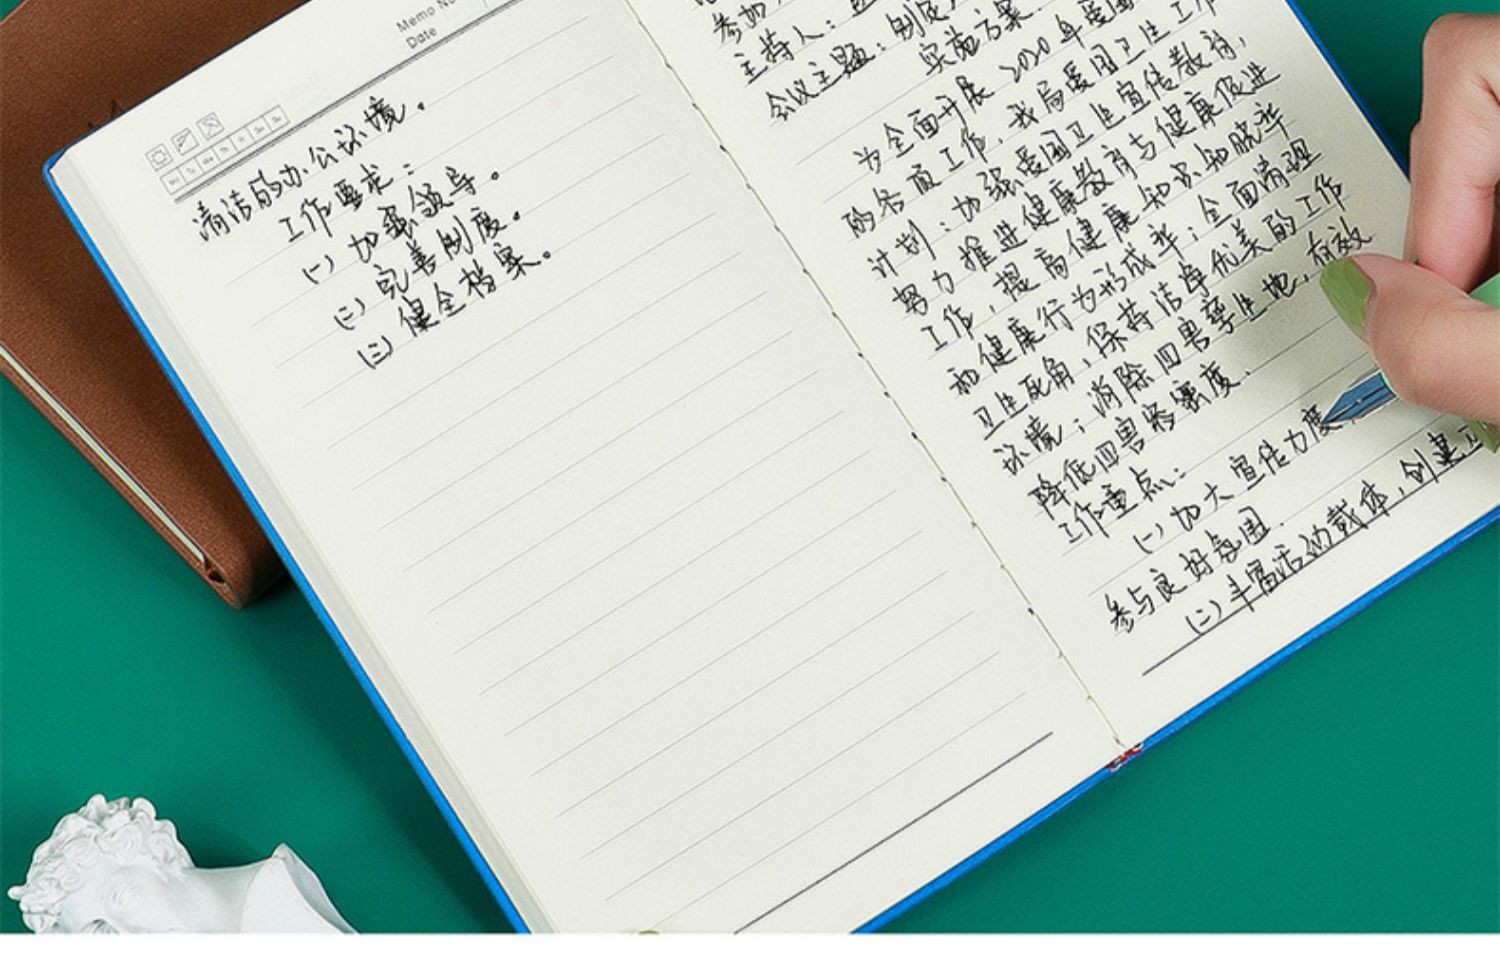 Memo No
Date
Mo Tu We Th Fr Sa Su
清洁的办公环境。
工作要求：
(一) 加强领导。
(二) 完善制度。
(三) 健全档案。
参加
主持人：
会议主题：制定
实施方案.
为全面开展2020年爱国卫生工作
的各项工作，我局爱国卫生宣传教育，
计划：加强爱国卫生宣传教育，
努力推进健康教育与健康促进
工作，提高健康知识知晓率
和健康行为形成率；全面清理
卫生死角，保持洁净优美的工作
环境；消除四害孳生地，有效
降低四害密度.
工作重点：
(一) 加大宣传力度
参与良好氛围.
(二) 丰富活动载体，创建卫